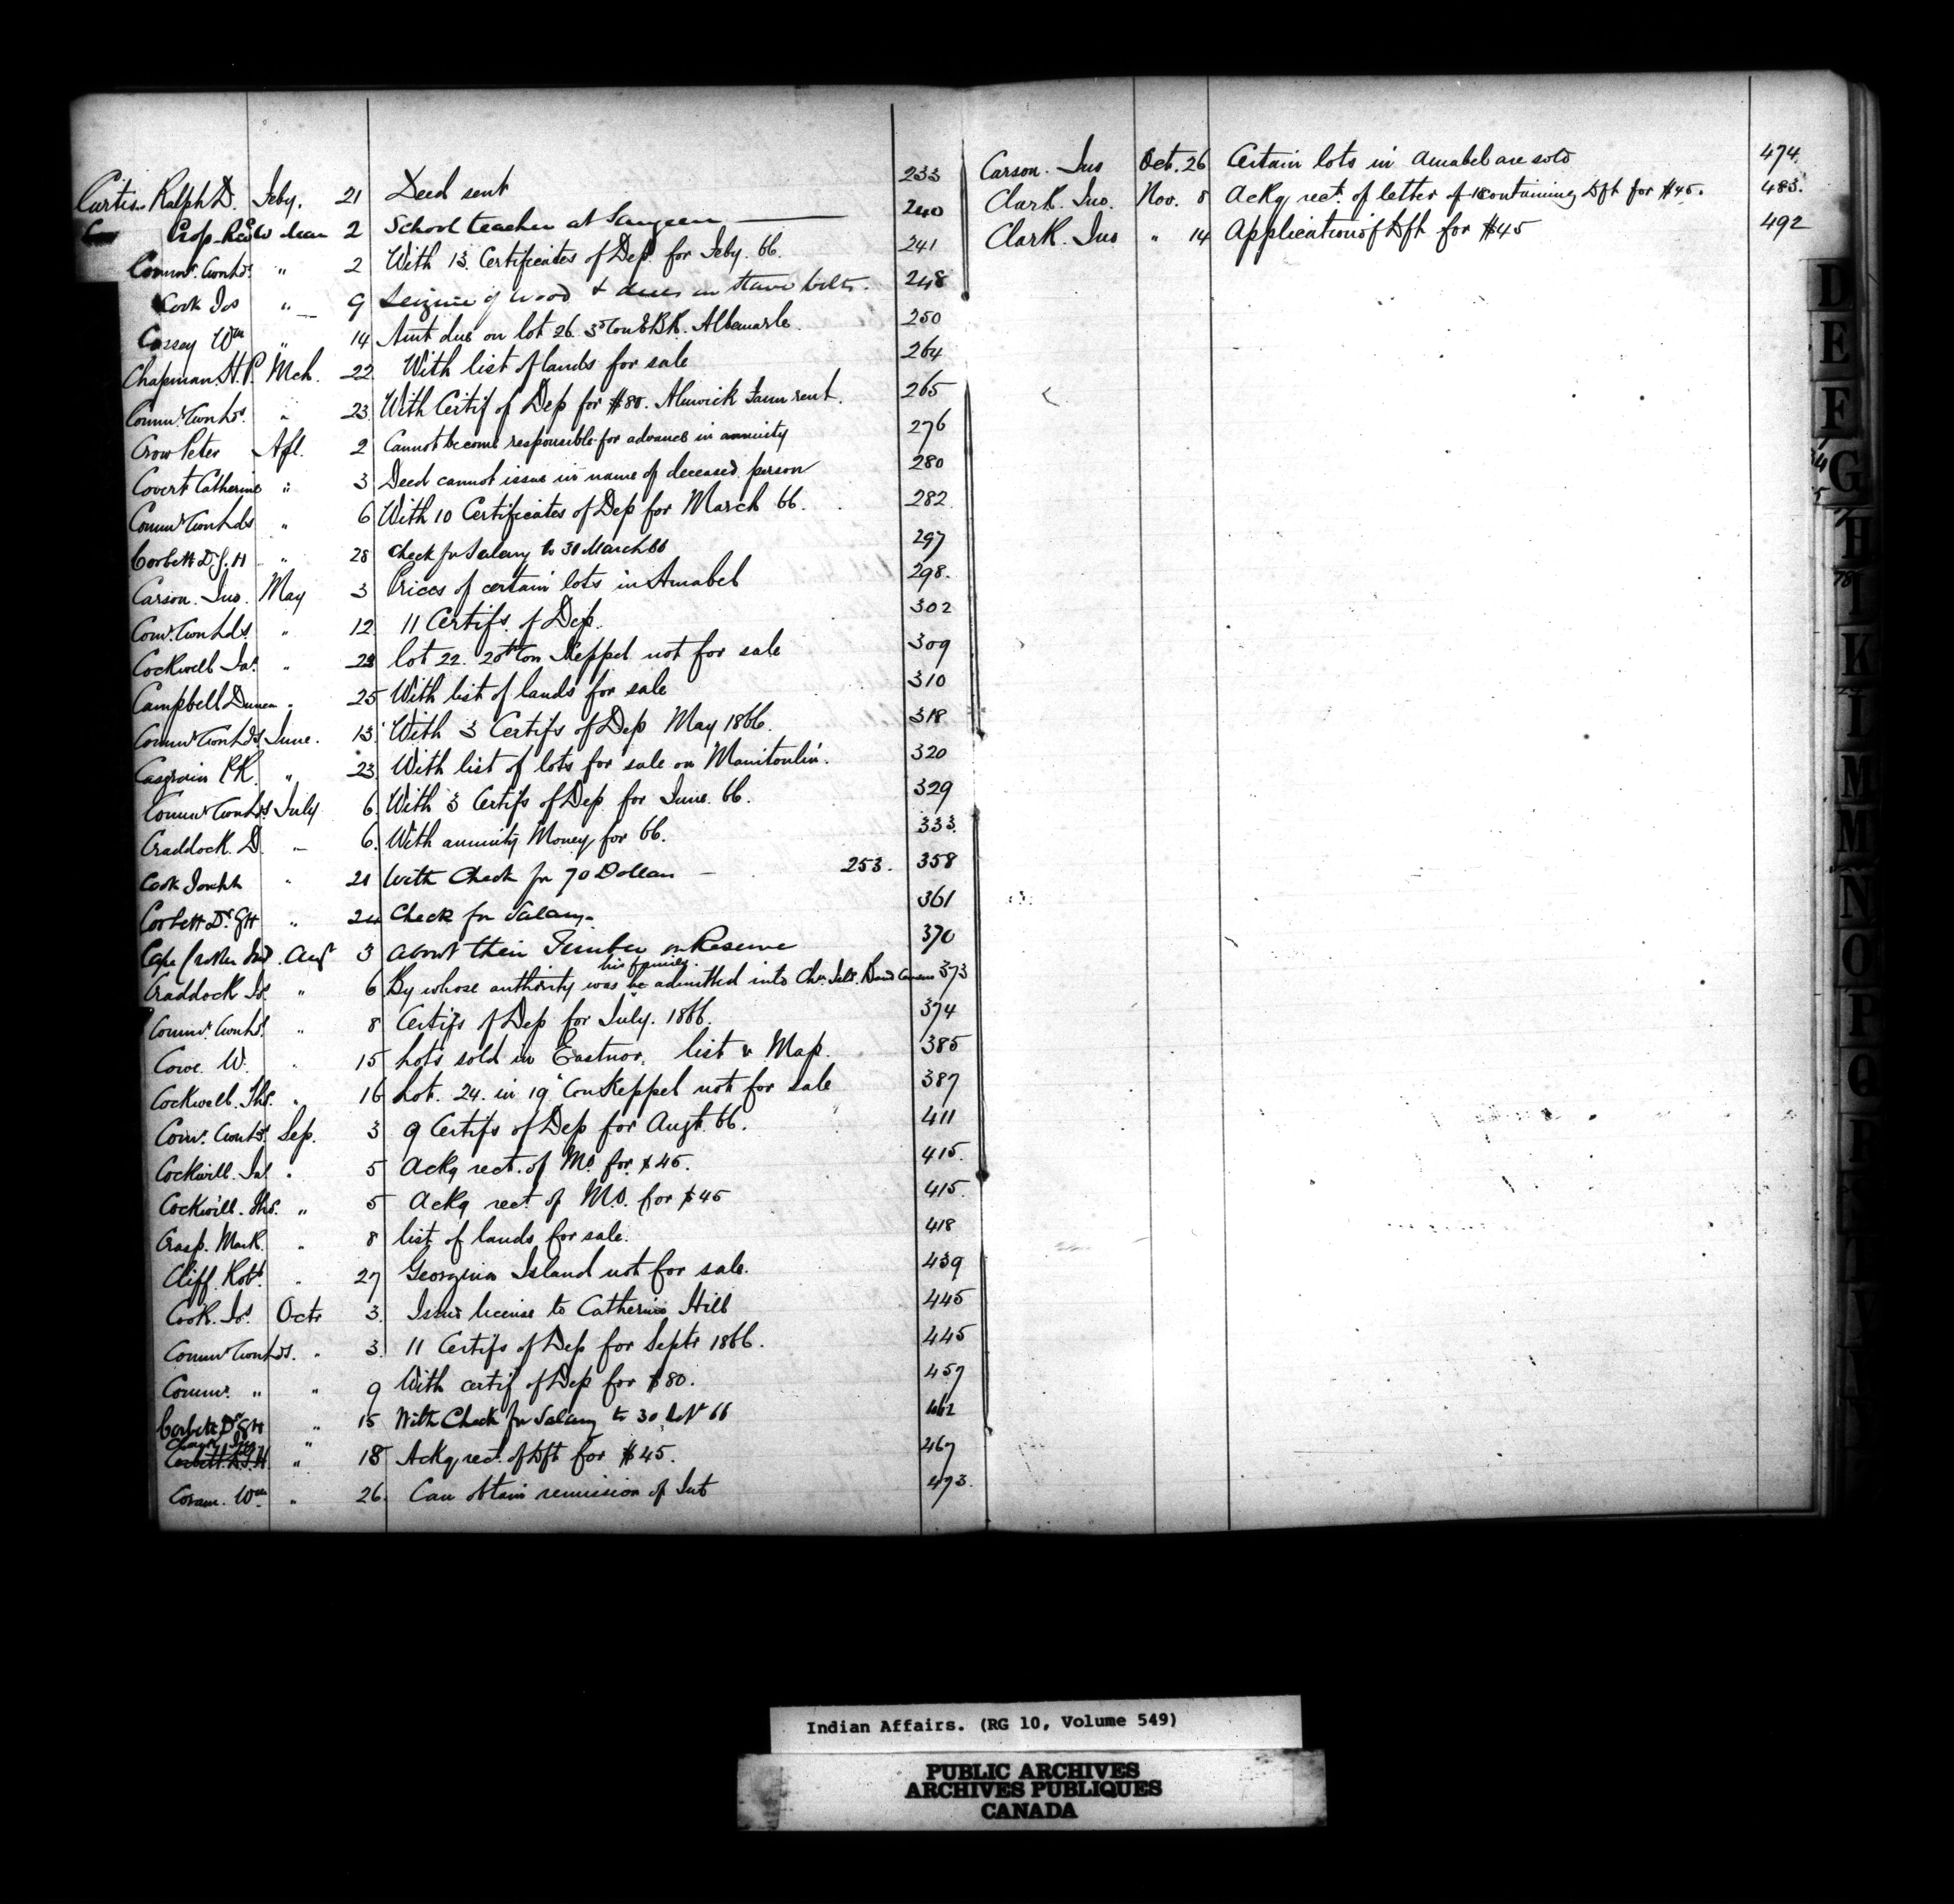 Curtis Ralph D. Feby. 21 Deed sent 233
Crop. Mar 2 School teacher at Saugeen 240
Commr. Crown Lds. " 2 With 13 Certificates of Dep. for Feby. 66. 241
Cook Jos " 9 Seizure of wood & dues on stave bolts. 248
Cossey Wm " 14 Amt due on lot 26. 3 Con E.B.R. Albemarle. 250
Chapman H.P. Mch. 22 With list of lands for sale 264
Commr. Crown Lds. " 23 With Certif of Dep for $80. Alnwick Farm rent. 265
Crow Peter Apl. 2 Cannot become responsible for advance in annuity 276
Covert Catherine " 3 Deed cannot issue in name of deceased person 280
Commr Crown Lds " 6 With 10 Certificates of Dep for March 66. 282
Corbett D.G.H " 28 Check for Salary to 31 March 66 297
Carson. Jno. May 3 Prices of certain lots in Amabel 298.
Comr. Crown Lds " 12 11 Certifs. of Dep. 302
Cockwell Jas. " 23 lot 22. 20th Con Keppel not for sale 309
Campbell Duncan " 25 With list of lands for sale 310
Commr Crown Lds June. 13 With 3 Certifs of Dep May 1866. 318
Casgrain P.R. " 23 With list of lots for sale on Manitoulin. 320
Commr Crown Lds July 6 With 3 Certifs of Dep for June. 66. 329
Craddock. D. " 6. With annuity Money for 66. 333
Cook Joseph " 21 With Check for 70 Dollars 253. 358
Corbett Dr. G H " 24 Check for Salary 361
Cape Croker Ind. Augt 3 About their Timber on Reserve 370
his family
Craddock " 6 By whose authority was he admitted into Chr. Isld. Band 373
Commr. Crown Lds. " 8 Certifs of Dep for July. 1866. 374
Cowe W. " 15 Lots sold in Eastnor. list & Map. 385
Cockwell. Ths. " 16 Lot. 24. in 19 Con Keppel not for sale 387
Comr. Crown Lds. Sep. 3 9 Certifs of Dep for Augt. 66. 411
Cockwill. Jas. " 5 Ackg rect. of M.O. for $45. 415.
Cockwill. Ths. " 5 Ackg rect. of M.O. for $45 415.
Crasp. Mark. " 8 list of lands for sale. 418
Cliff Robt " 27 Georgina Island not for sale. 439
Cook. Js. Octr 3. Issue license to Catherine Hill 445
Commr Crown Lds. " 3. 11 Certifs of Dep for Septr 1866. 445
Commr. " " 9 With certif of Dep for $80. 457
Corbett Dr G H " 15 With Check for Salary to 30 Sept 66 462
Corbett D.G.H. " 18 Ackg rect. of Dft for $45. 467
Coram. Wm " 26. Can obtain remission of Int 473.
Carson. Jno Oct. 26 Certain lots in Amabel are sold 474.
Clark. Jno. Nov. 8 Ackg rect. of letter of 18 containing Dft for $45. 483.
Clark. Jno " 14 Application of Dft for $45 492
D
E
F
G
H
I
K
L
M
M
N
O
P
Q
R
Indian Affairs. (RG 10, Volume 549)
PUBLIC ARCHIVES
ARCHIVES PUBLIQUES
CANADA